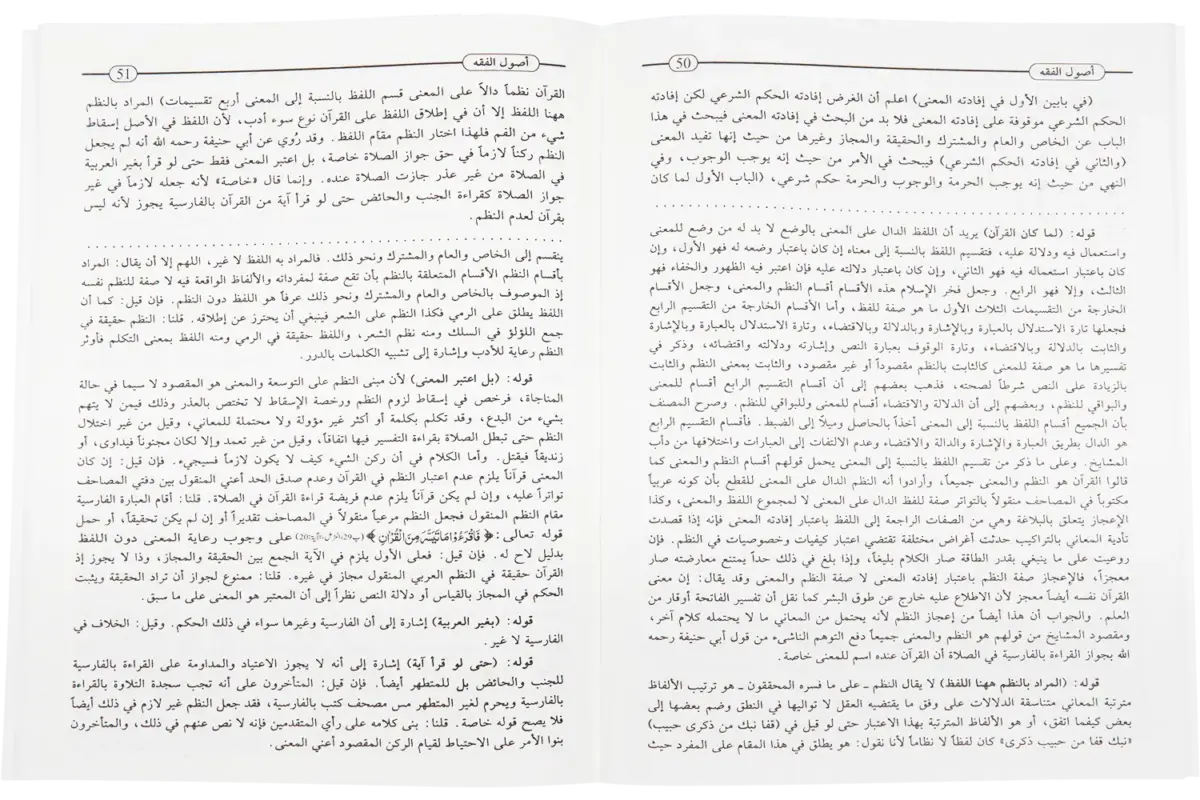 أصول الفقه
50
(في بابين الأول في إفادته المعنى) اعلم أن الغرض إفادته الحكم الشرعي لكن إفادته
الحكم الشرعي موقوفة على إفادته المعنى فلا بد من البحث في إفادته المعنى فيبحث في هذا
الباب عن الخاص والعام والمشترك والحقيقة والمجاز وغيرها من حيث إنها تفيد المعنى
(والثاني في إفادته الحكم الشرعي) فيبحث في الأمر من حيث إنه يوجب الوجوب، وفي
النهي من حيث إنه يوجب الحرمة والوجوب والحرمة حكم شرعي، (الباب الأول لما كان
قوله: (لما كان القرآن) يريد أن اللفظ الدال على المعنى بالوضع لا بد له من وضع للمعنى
واستعمال فيه ودلالة عليه، فتقسيم اللفظ بالنسبة إلى معناه إن كان باعتبار وضعه له فهو الأول، وإن
كان باعتبار استعماله فيه فهو الثاني، وإن كان باعتبار دلالته عليه فإن اعتبر فيه الظهور والخفاء فهو
الثالث، وإلا فهو الرابع. وجعل فخر الإسلام هذه الأقسام أقسام النظم والمعنى، وجعل الأقسام
الخارجة من التقسيمات الثلاث الأول ما هو صفة للفظ، وأما الأقسام الخارجة من التقسيم الرابع
فجعلها تارة الاستدلال بالعبارة وبالإشارة وبالدلالة وبالاقتضاء، وتارة الاستدلال بالعبارة وبالإشارة
والثابت بالدلالة وبالاقتضاء، وتارة الوقوف بعبارة النص وإشارته ودلالته واقتضائه، وذكر في
تفسيرها ما هو صفة للمعنى كالثابت بالنظم مقصوداً أو غير مقصود، والثابت بمعنى النظم والثابت
بالزيادة على النص شرطاً لصحته، فذهب بعضهم إلى أن أقسام التقسيم الرابع أقسام للمعنى
والبواقي للنظم، وبعضهم إلى أن الدلالة والاقتضاء أقسام للمعنى وللبواقي للنظم. وصرح المصنف
بأن الجميع أقسام اللفظ بالنسبة إلى المعنى أخذاً بالحاصل وميلاً إلى الضبط. فأقسام التقسيم الرابع
هو الدال بطريق العبارة والإشارة والدالة والاقتضاء وعدم الالتفات إلى العبارات واختلافها من دأب
المشايخ. وعلى ما ذكر من تقسيم اللفظ بالنسبة إلى المعنى يحمل قولهم أقسام النظم والمعنى كما
قالوا القرآن هو النظم والمعنى جميعاً، وأرادوا أنه النظم الدال على المعنى للقطع بأن كونه عربياً
مكتوباً في المصاحف منقولاً بالتواتر صفة للفظ الدال على المعنى لا لمجموع اللفظ والمعنى، وكذا
الإعجاز يتعلق بالبلاغة وهي من الصفات الراجعة إلى اللفظ باعتبار إفادته المعنى فإنه إذا قصدت
تأدية المعاني بالتراكيب حدثت أغراض مختلفة تقتضي اعتبار كيفيات وخصوصيات في النظم. فإن
روعيت على ما ينبغي بقدر الطاقة صار الكلام بليغاً، وإذا بلغ في ذلك حداً يمتنع معارضته صار
معجزاً، فالإعجاز صفة النظم باعتبار إفادته المعنى لا صفة النظم والمعنى وقد يقال: إن معنى
القرآن نفسه أيضاً معجز لأن الاطلاع عليه خارج عن طوق البشر كما نقل أن تفسير الفاتحة أوقار من
العلم. والجواب أن هذا أيضاً من إعجاز النظم لأنه يحتمل من المعاني ما لا يحتمله كلام آخر،
ومقصود المشايخ من قولهم هو النظم والمعنى جميعاً دفع التوهم الناشىء من قول أبي حنيفة رحمه
الله بجواز القراءة بالفارسية في الصلاة أن القرآن عنده اسم للمعنى خاصة.
قوله: (المراد بالنظم ههنا اللفظ) لا يقال النظم ـ على ما فسره المحققون ـ هو ترتيب الألفاظ
مترتبة المعاني متناسقة الدلالات على وفق ما يقتضيه العقل لا تواليها في النطق وضم بعضها إلى
بعض كيفما اتفق، أو هو الألفاظ المترتبة بهذا الاعتبار حتى لو قيل في (قفا نبك من ذكرى حبيب)
«نبك قفا من حبيب ذكرى» كان لفظاً لا نظاماً لأنا نقول: هو يطلق في هذا المقام على المفرد حيث
أصول الفقه
51
القرآن نظماً دالاً على المعنى قسم اللفظ بالنسبة إلى المعنى أربع تقسيمات) المراد بالنظم
ههنا اللفظ إلا أن في إطلاق اللفظ على القرآن نوع سوء أدب، لأن اللفظ في الأصل إسقاط
شيء من الفم فلهذا اختار النظم مقام اللفظ. وقد رُوي عن أبي حنيفة رحمه الله أنه لم يجعل
النظم ركناً لازماً في حق جواز الصلاة خاصة، بل اعتبر المعنى فقط حتى لو قرأ بغير العربية
في الصلاة من غير عذر جازت الصلاة عنده. وإنما قال «خاصة» لأنه جعله لازماً في غير
جواز الصلاة كقراءة الجنب والحائض حتى لو قرأ آية من القرآن بالفارسية يجوز لأنه ليس
بقرآن لعدم النظم.
ينقسم إلى الخاص والعام والمشترك ونحو ذلك. فالمراد به اللفظ لا غير، اللهم إلا أن يقال: المراد
بأقسام النظم الأقسام المتعلقة بالنظم بأن تقع صفة لمفرداته والألفاظ الواقعة فيه لا صفة للنظم نفسه
إذ الموصوف بالخاص والعام والمشترك ونحو ذلك عرفاً هو اللفظ دون النظم. فإن قيل: كما أن
اللفظ يطلق على الرمي فكذا النظم على الشعر فينبغي أن يحترز عن إطلاقه. قلنا: النظم حقيقة في
جمع اللؤلؤ في السلك ومنه نظم الشعر، واللفظ حقيقة في الرمي ومنه اللفظ بمعنى التكلم فأوثر
النظم رعاية للأدب وإشارة إلى تشبيه الكلمات بالدرر.
قوله: (بل اعتبر المعنى) لأن مبنى النظم على التوسعة والمعنى هو المقصود لا سيما في حالة
المناجاة، فرخص في إسقاط لزوم النظم ورخصة الإسقاط لا تختص بالعذر وذلك فيمن لا يتهم
بشيء من البدع، وقد تكلم بكلمة أو أكثر غير مؤولة ولا محتملة للمعاني، وقيل من غير اختلال
النظم حتى تبطل الصلاة بقراءة التفسير فيها اتفاقاً، وقيل من غير تعمد وإلا لكان مجنوناً فيداوى، أو
زنديقاً فيقتل. وأما الكلام في أن ركن الشيء كيف لا يكون لازماً فسيجيء. فإن قيل: إن كان
المعنى قرآناً يلزم عدم اعتبار النظم في القرآن وعدم صدق الحد أعني المنقول بين دفتي المصاحف
تواتراً عليه، وإن لم يكن قرآناً يلزم عدم فريضة قراءة القرآن في الصلاة. قلنا: أقام العبارة الفارسية
مقام النظم المنقول فجعل النظم مرعياً منقولاً في المصاحف تقديراً أو إن لم يكن تحقيقاً، أو حمل
قوله تعالى: ﴿ فَاقْرَءُوْا مَا تَيَسَّرَ مِنَ الْقُرْاٰنِ ﴾ على وجوب رعاية المعنى دون اللفظ
بدليل لاح له. فإن قيل: فعلى الأول يلزم في الآية الجمع بين الحقيقة والمجاز، وذا لا يجوز إذ
القرآن حقيقة في النظم العربي المنقول مجاز في غيره. قلنا: ممنوع لجواز أن تراد الحقيقة ويثبت
الحكم في المجاز بالقياس أو دلالة النص نظراً إلى أن المعتبر هو المعنى على ما سبق.
قوله: (بغير العربية) إشارة إلى أن الفارسية وغيرها سواء في ذلك الحكم. وقيل: الخلاف في
الفارسية لا غير.
قوله: (حتى لو قرأ آية) إشارة إلى أنه لا يجوز الاعتياد والمداومة على القراءة بالفارسية
للجنب والحائض بل للمتطهر أيضاً. فإن قيل: المتأخرون على أنه تجب سجدة التلاوة بالقراءة
بالفارسية ويحرم لغير المتطهر مس مصحف كتب بالفارسية، فقد جعل النظم غير لازم في ذلك أيضاً
فلا يصح قوله خاصة. قلنا: بنى كلامه على رأي المتقدمين فإنه لا نص عنهم في ذلك، والمتأخرون
بنوا الأمر على الاحتياط لقيام الركن المقصود أعني المعنى.